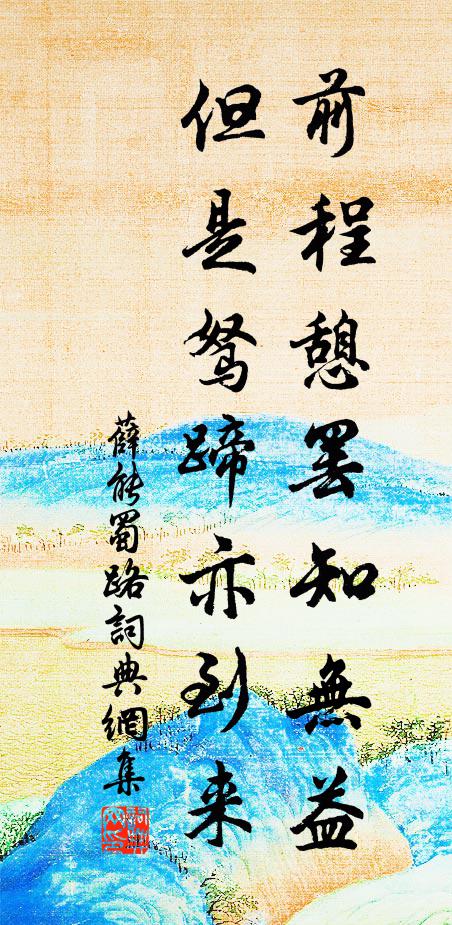 前程憩罢知無益
但是駑蹄亦到来
薛能蜀路詞典網集